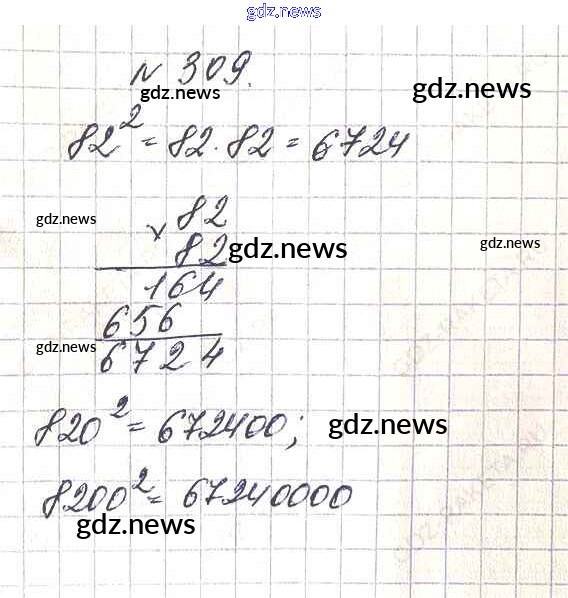 gdz.news
№ 309.
gdz.news gdz.news
82² = 82 · 82 = 6724
gdz.news × 82
82 gdz.news gdz.news
164
656
gdz.news 6724
820² = 672400; gdz.news
8200² = 67240000
gdz.news
GDZ-RAKETA.RU
GDZ-RAKETA.RU